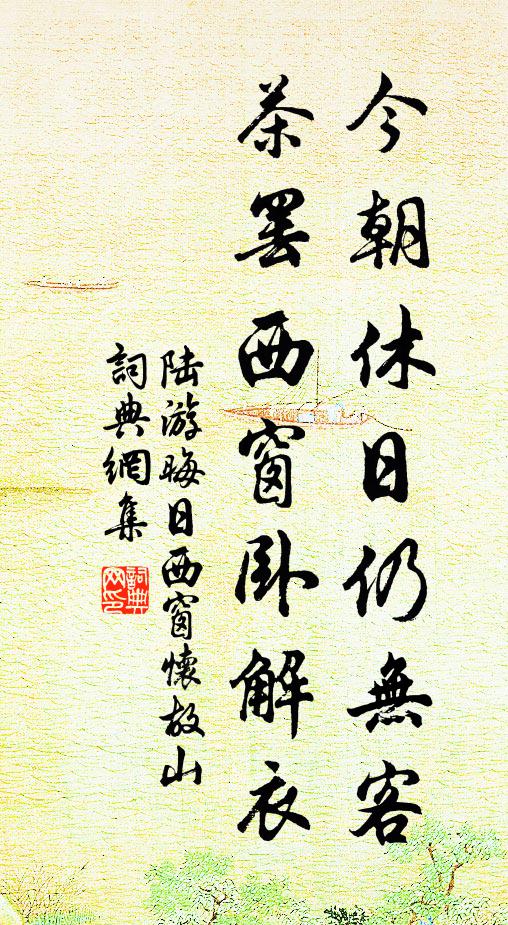 今朝休日仍無客
茶罷西窗卧解衣
陆游晦日西窗懷故山
詞典網集
詞典
网印